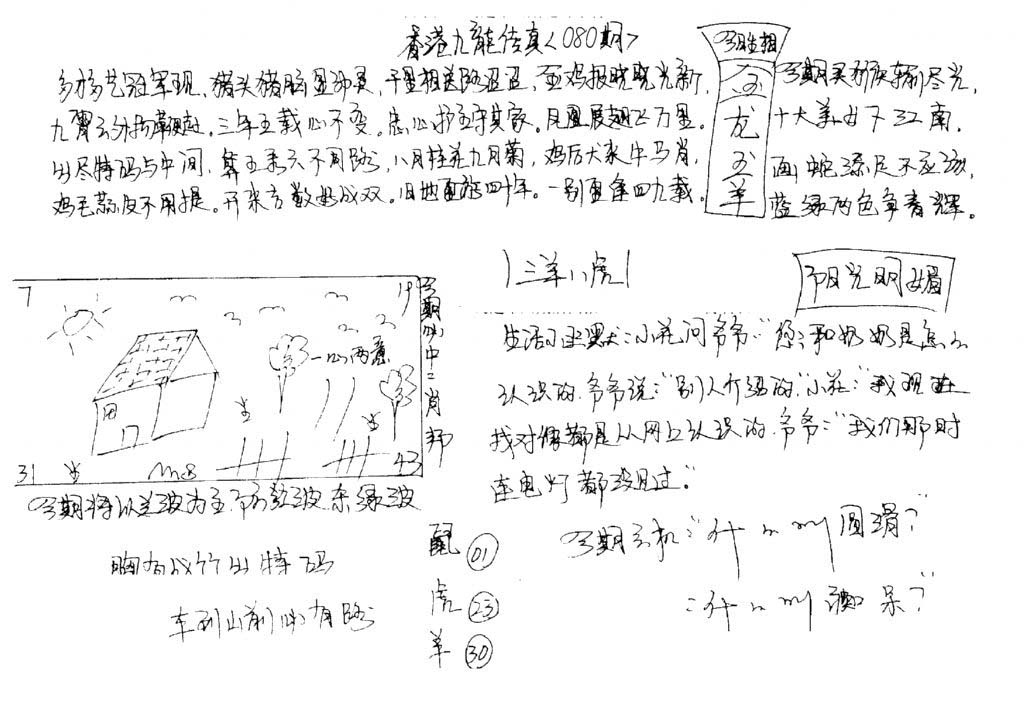 香港九龍传真<080期>
多才多艺冠军现、猪头猪脑显神灵、千里相送路遥遥、金鸡报晓晓光新、
九霄云外扬鞭起、三年五载心不变。忠心护主守其家。凤凰展翅飞万里。
出尽特码与中间、单五来六不同路、八月桂花九月菊，鸡后犬来牛马肖，
鸡毛蒜皮不用提。开来吉数必成双。旧地重游四十年。一别重逢四九载。
今期生相
龙
羊
今期买 输尽光，
十大美女下江南，
画蛇添足不应该，
蓝绿两色争春辉。
7
19
31
43
一心两意
m8
今期必中二肖
三羊八虎
阳光明媚
生活小幽默：小花问爷爷："您和奶奶是怎么
认识的。爷爷说："别人介绍的"小花："我现在
找对像都是从网上认识的。爷爷："我们那时
连电灯都没见过。"
今期将以兰波为主、防红波、杀绿波
胸有成竹出特码
车到山前必有路
鼠 01
虎 23
羊 30
今期玄机："什么 圆滑？
：什么 呆？"